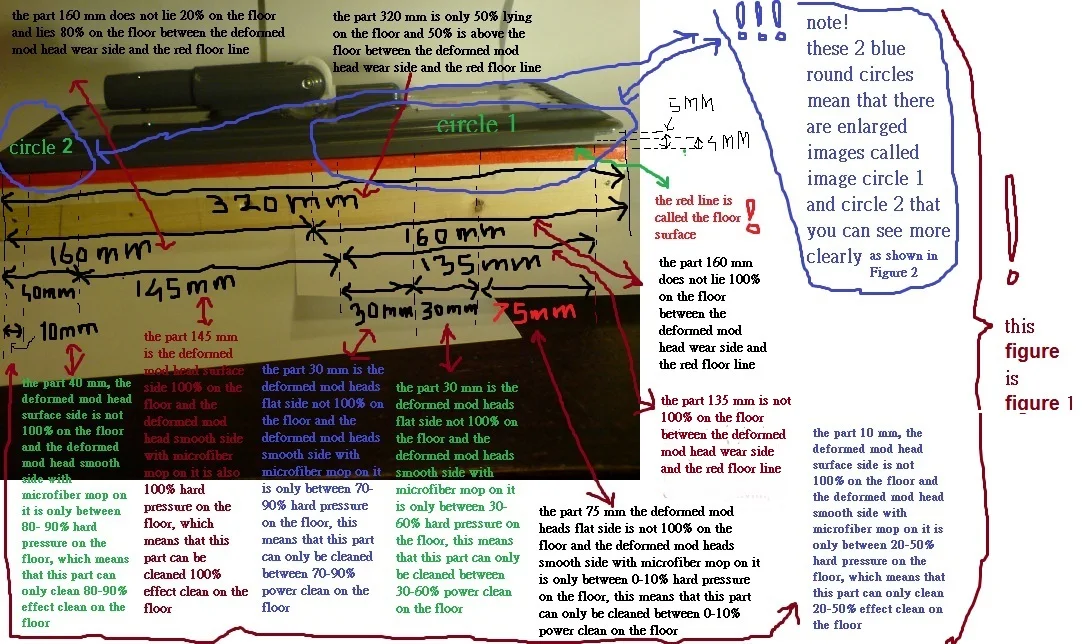 the part 160 mm does not lie 20% on the floor
and lies 80% on the floor between the deformed
mod head wear side and the red floor line
the part 320 mm is only 50% lying
on the floor and 50% is above the
floor between the deformed mod
head wear side and the red floor line
!!!
note!
these 2 blue
round circles
mean that there
are enlarged
images called
image circle 1
and circle 2 that
you can see more
clearly as shown in
Figure 2
circle 2
circle 1
5MM
4MM
the red line is
called the floor
surface
!
320mm
160mm
160mm
135mm
40mm
145mm
30mm
30mm
75mm
10mm
the part 160 mm
does not lie 100%
on the floor
between the
deformed mod
head wear side and
the red floor line
!
this
figure
is
figure 1
the part 145 mm
is the deformed
mod head surface
side 100% on the
floor and the
deformed mod
head smooth side
with microfiber
mop on it is also
100% hard
pressure on the
floor, which
means that this
part can be
cleaned 100%
effect clean on the
floor
the part 40 mm, the
deformed mod head
surface side is not
100% on the floor
and the deformed
mod head smooth
side with
microfiber mop on
it is only between
80- 90% hard
pressure on the
floor, which means
that this part can
only clean 80-90%
effect clean on the
floor
the part 30 mm is the
deformed mod heads
flat side not 100% on
the floor and the
deformed mod heads
smooth side with
microfiber mop on it
is only between 70-
90% hard pressure
on the floor, this
means that this part
can only be cleaned
between 70-90%
power clean on the
floor
the part 30 mm is the
deformed mod heads
flat side not 100% on
the floor and the
deformed mod heads
smooth side with
microfiber mop on it
is only between 30-
60% hard pressure on
the floor, this means
that this part can only
be cleaned between
30-60% power clean
on the floor
the part 135 mm is not
100% on the floor
between the deformed
mod head wear side
and the red floor line
the part 75 mm the deformed mod
heads flat side is not 100% on the
floor and the deformed mod heads
smooth side with microfiber mop on it
is only between 0-10% hard pressure
on the floor, this means that this part
can only be cleaned between 0-10%
power clean on the floor
the part 10 mm, the
deformed mod head
surface side is not
100% on the floor and
the deformed mod head
smooth side with
microfiber mop on it is
only between 20-50%
hard pressure on the
floor, which means that
this part can only clean
20-50% effect clean on
the floor